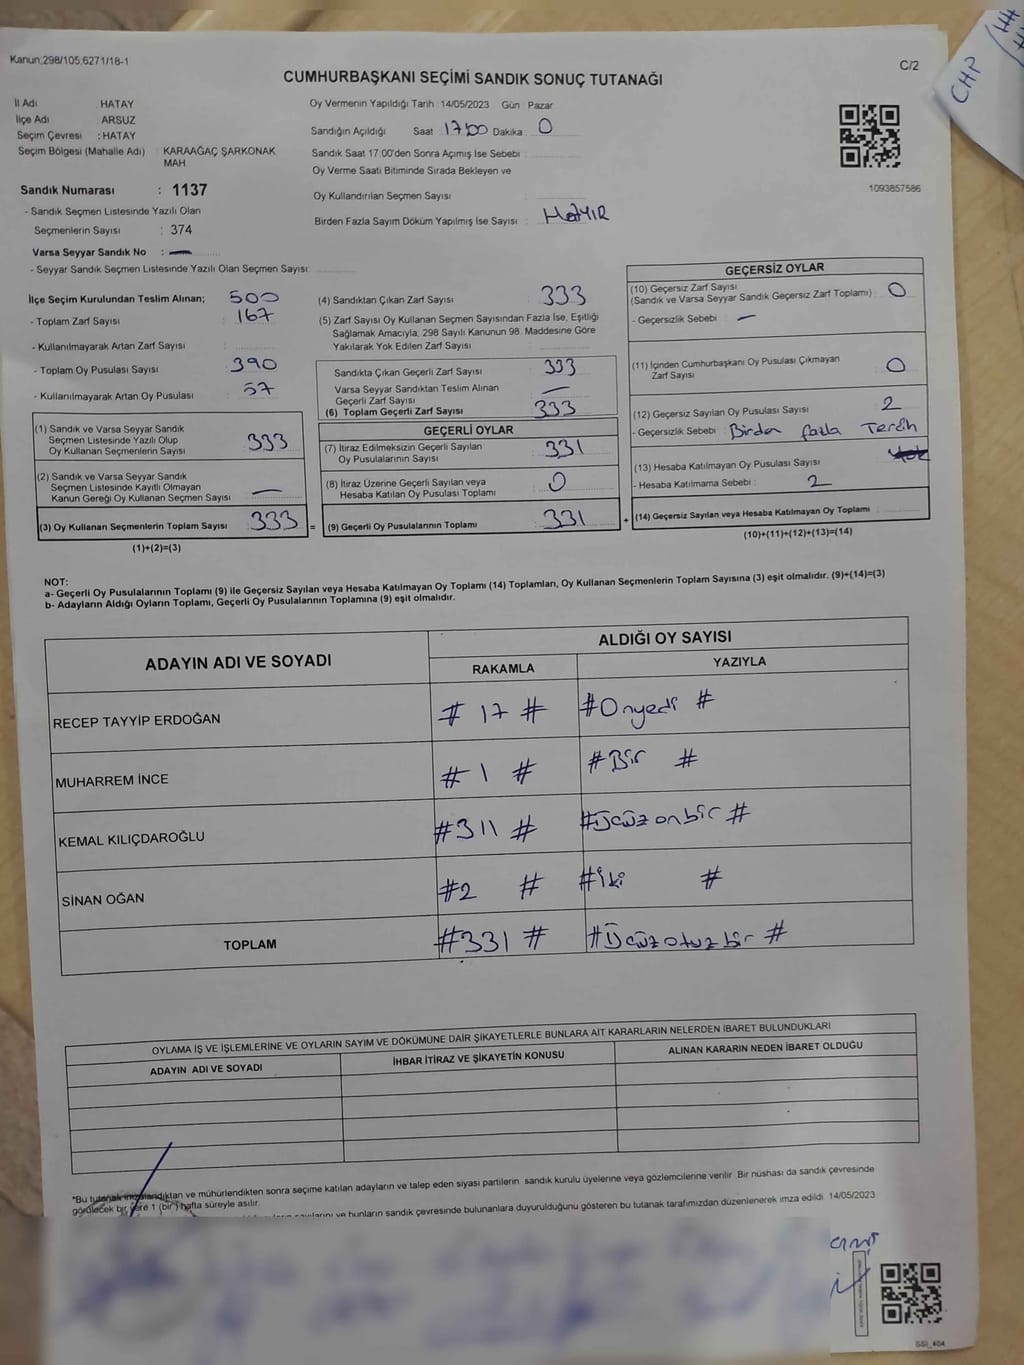 Kanun:298/105,6271/18-1
C/2
CHP
CUMHURBAŞKANI SEÇİMİ SANDIK SONUÇ TUTANAĞI
İl Adı : HATAY
İlçe Adı : ARSUZ
Seçim Çevresi : HATAY
Seçim Bölgesi (Mahalle Adı) : KARAAĞAÇ ŞARKONAK
MAH.
Sandık Numarası : 1137
- Sandık Seçmen Listesinde Yazılı Olan
Seçmenlerin Sayısı : 374
Varsa Seyyar Sandık No : —
- Seyyar Sandık Seçmen Listesinde Yazılı Olan Seçmen Sayısı:
Oy Vermenin Yapıldığı Tarih :14/05/2023 Gün : Pazar
Sandığın Açıldığı Saat 17:00 Dakika 0
Sandık Saat 17.00'den Sonra Açımış İse Sebebi :
Oy Verme Saati Bitiminde Sırada Bekleyen ve
Oy Kullandırılan Seçmen Sayısı :
Birden Fazla Sayım Döküm Yapılmış İse Sayısı : HAYIR
1093857586
İlçe Seçim Kurulundan Teslim Alınan; 500
- Toplam Zarf Sayısı : 167
- Kullanılmayarak Artan Zarf Sayısı :
- Toplam Oy Pusulası Sayısı : 390
- Kullanılmayarak Artan Oy Pusulası : 57
(1) Sandık ve Varsa Seyyar Sandık
Seçmen Listesinde Yazılı Olup
Oy Kullanan Seçmenlerin Sayısı : 333
(2) Sandık ve Varsa Seyyar Sandık
Seçmen Listesinde Kayıtlı Olmayan
Kanun Gereği Oy Kullanan Seçmen Sayısı : —
(3) Oy Kullanan Seçmenlerin Toplam Sayısı : 333 =
(1)+(2)=(3)
(4) Sandıktan Çıkan Zarf Sayısı : 333
(5) Zarf Sayısı Oy Kullanan Seçmen Sayısından Fazla İse, Eşitliği
Sağlamak Amacıyla, 298 Sayılı Kanunun 98. Maddesine Göre
Yakılarak Yok Edilen Zarf Sayısı :
Sandıkta Çıkan Geçerli Zarf Sayısı : 333
Varsa Seyyar Sandıktan Teslim Alınan
Geçerli Zarf Sayısı : —
(6) Toplam Geçerli Zarf Sayısı : 333
GEÇERLİ OYLAR
(7) İtiraz Edilmeksizin Geçerli Sayılan
Oy Pusulalarının Sayısı : 331
(8) İtiraz Üzerine Geçerli Sayılan veya
Hesaba Katılan Oy Pusulası Toplamı : 0
(9) Geçerli Oy Pusulalarının Toplamı : 331 +
GEÇERSİZ OYLAR
(10) Geçersiz Zarf Sayısı
(Sandık ve Varsa Seyyar Sandık Geçersiz Zarf Toplamı) : 0
- Geçersizlik Sebebi : —
(11) İçinden Cumhurbaşkanı Oy Pusulası Çıkmayan
Zarf Sayısı : 0
(12) Geçersiz Sayılan Oy Pusulası Sayısı : 2
- Geçersizlik Sebebi : Birden fazla Tercih
(13) Hesaba Katılmayan Oy Pusulası Sayısı :
- Hesaba Katılmama Sebebi : 2
(14) Geçersiz Sayılan veya Hesaba Katılmayan Oy Toplamı :
(10)+(11)+(12)+(13)=(14)
NOT:
a- Geçerli Oy Pusulalarının Toplamı (9) ile Geçersiz Sayılan veya Hesaba Katılmayan Oy Toplamı (14) Toplamları, Oy Kullanan Seçmenlerin Toplam Sayısına (3) eşit olmalıdır. (9)+(14)=(3)
b- Adayların Aldığı Oyların Toplamı, Geçerli Oy Pusulalarının Toplamına (9) eşit olmalıdır.
ADAYIN ADI VE SOYADI
ALDIĞI OY SAYISI
RAKAMLA YAZIYLA
RECEP TAYYİP ERDOĞAN # 17 # #Onyedi #
MUHARREM İNCE # 1 # #Bir #
KEMAL KILIÇDAROĞLU #311 # #Üçyüz onbir #
SİNAN OĞAN #2 # #İki #
TOPLAM #331 # #Üçyüz otuz bir #
OYLAMA İŞ VE İŞLEMLERİNE VE OYLARIN SAYIM VE DÖKÜMÜNE DAİR ŞİKAYETLERLE BUNLARA AİT KARARLARIN NELERDEN İBARET BULUNDUKLARI
ADAYIN ADI VE SOYADI
İHBAR İTİRAZ VE ŞİKAYETİN KONUSU
ALINAN KARARIN NEDEN İBARET OLDUĞU
*Bu tutanak imzalandıktan ve mühürlendikten sonra seçime katılan adayların ve talep eden siyasi partilerin sandık kurulu üyelerine veya gözlemcilerine verilir. Bir nüshası da sandık çevresinde
görülecek bir yere 1 (bir) hafta süreyle asılır.
ve bunların sandık çevresinde bulunanlara duyurulduğunu gösteren bu tutanak tarafımızdan düzenlenerek imza edildi. 14/05/2023
SSI_404